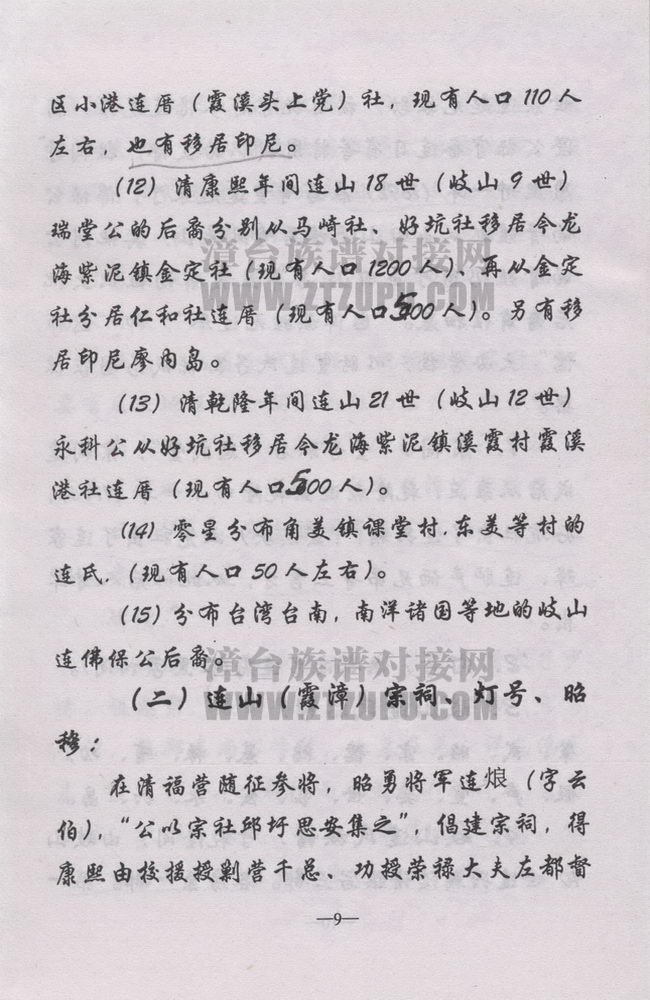 区小港连厝（霞溪头上党）社，现有人口110人
左右，也有移居印尼。
(12) 清康熙年间连山18世（岐山9世）
瑞堂公的后裔分别从马崎社、好坑社移居今龙
海紫泥镇金定社（现有人口1200人）、再从金定
社分居仁和社连厝（现有人口500人）。另有移
居印尼廖内岛。
(13) 清乾隆年间连山21世（岐山12世）
永科公从好坑社移居今龙海紫泥镇溪霞村霞溪
港社连厝（现有人口500人）。
(14) 零星分布角美镇课堂村，东美等村的
连氏，（现有人口50人左右）。
(15) 分布台湾台南，南洋诸国等地的岐山
连佛保公后裔。
（二）连山（霞漳）宗祠、灯号、昭
移：
在清福营随征参将，昭勇将军连烺（字云
伯），“公以宗社邱圩思安集之”，倡建宗祠，得
康熙由校援授剿营千总、功授荣禄大夫左都督
—9—
漳台族谱对接网
WWW.ZTZUPU.COM
漳台族谱对接网
WWW.ZTZUPU.COM